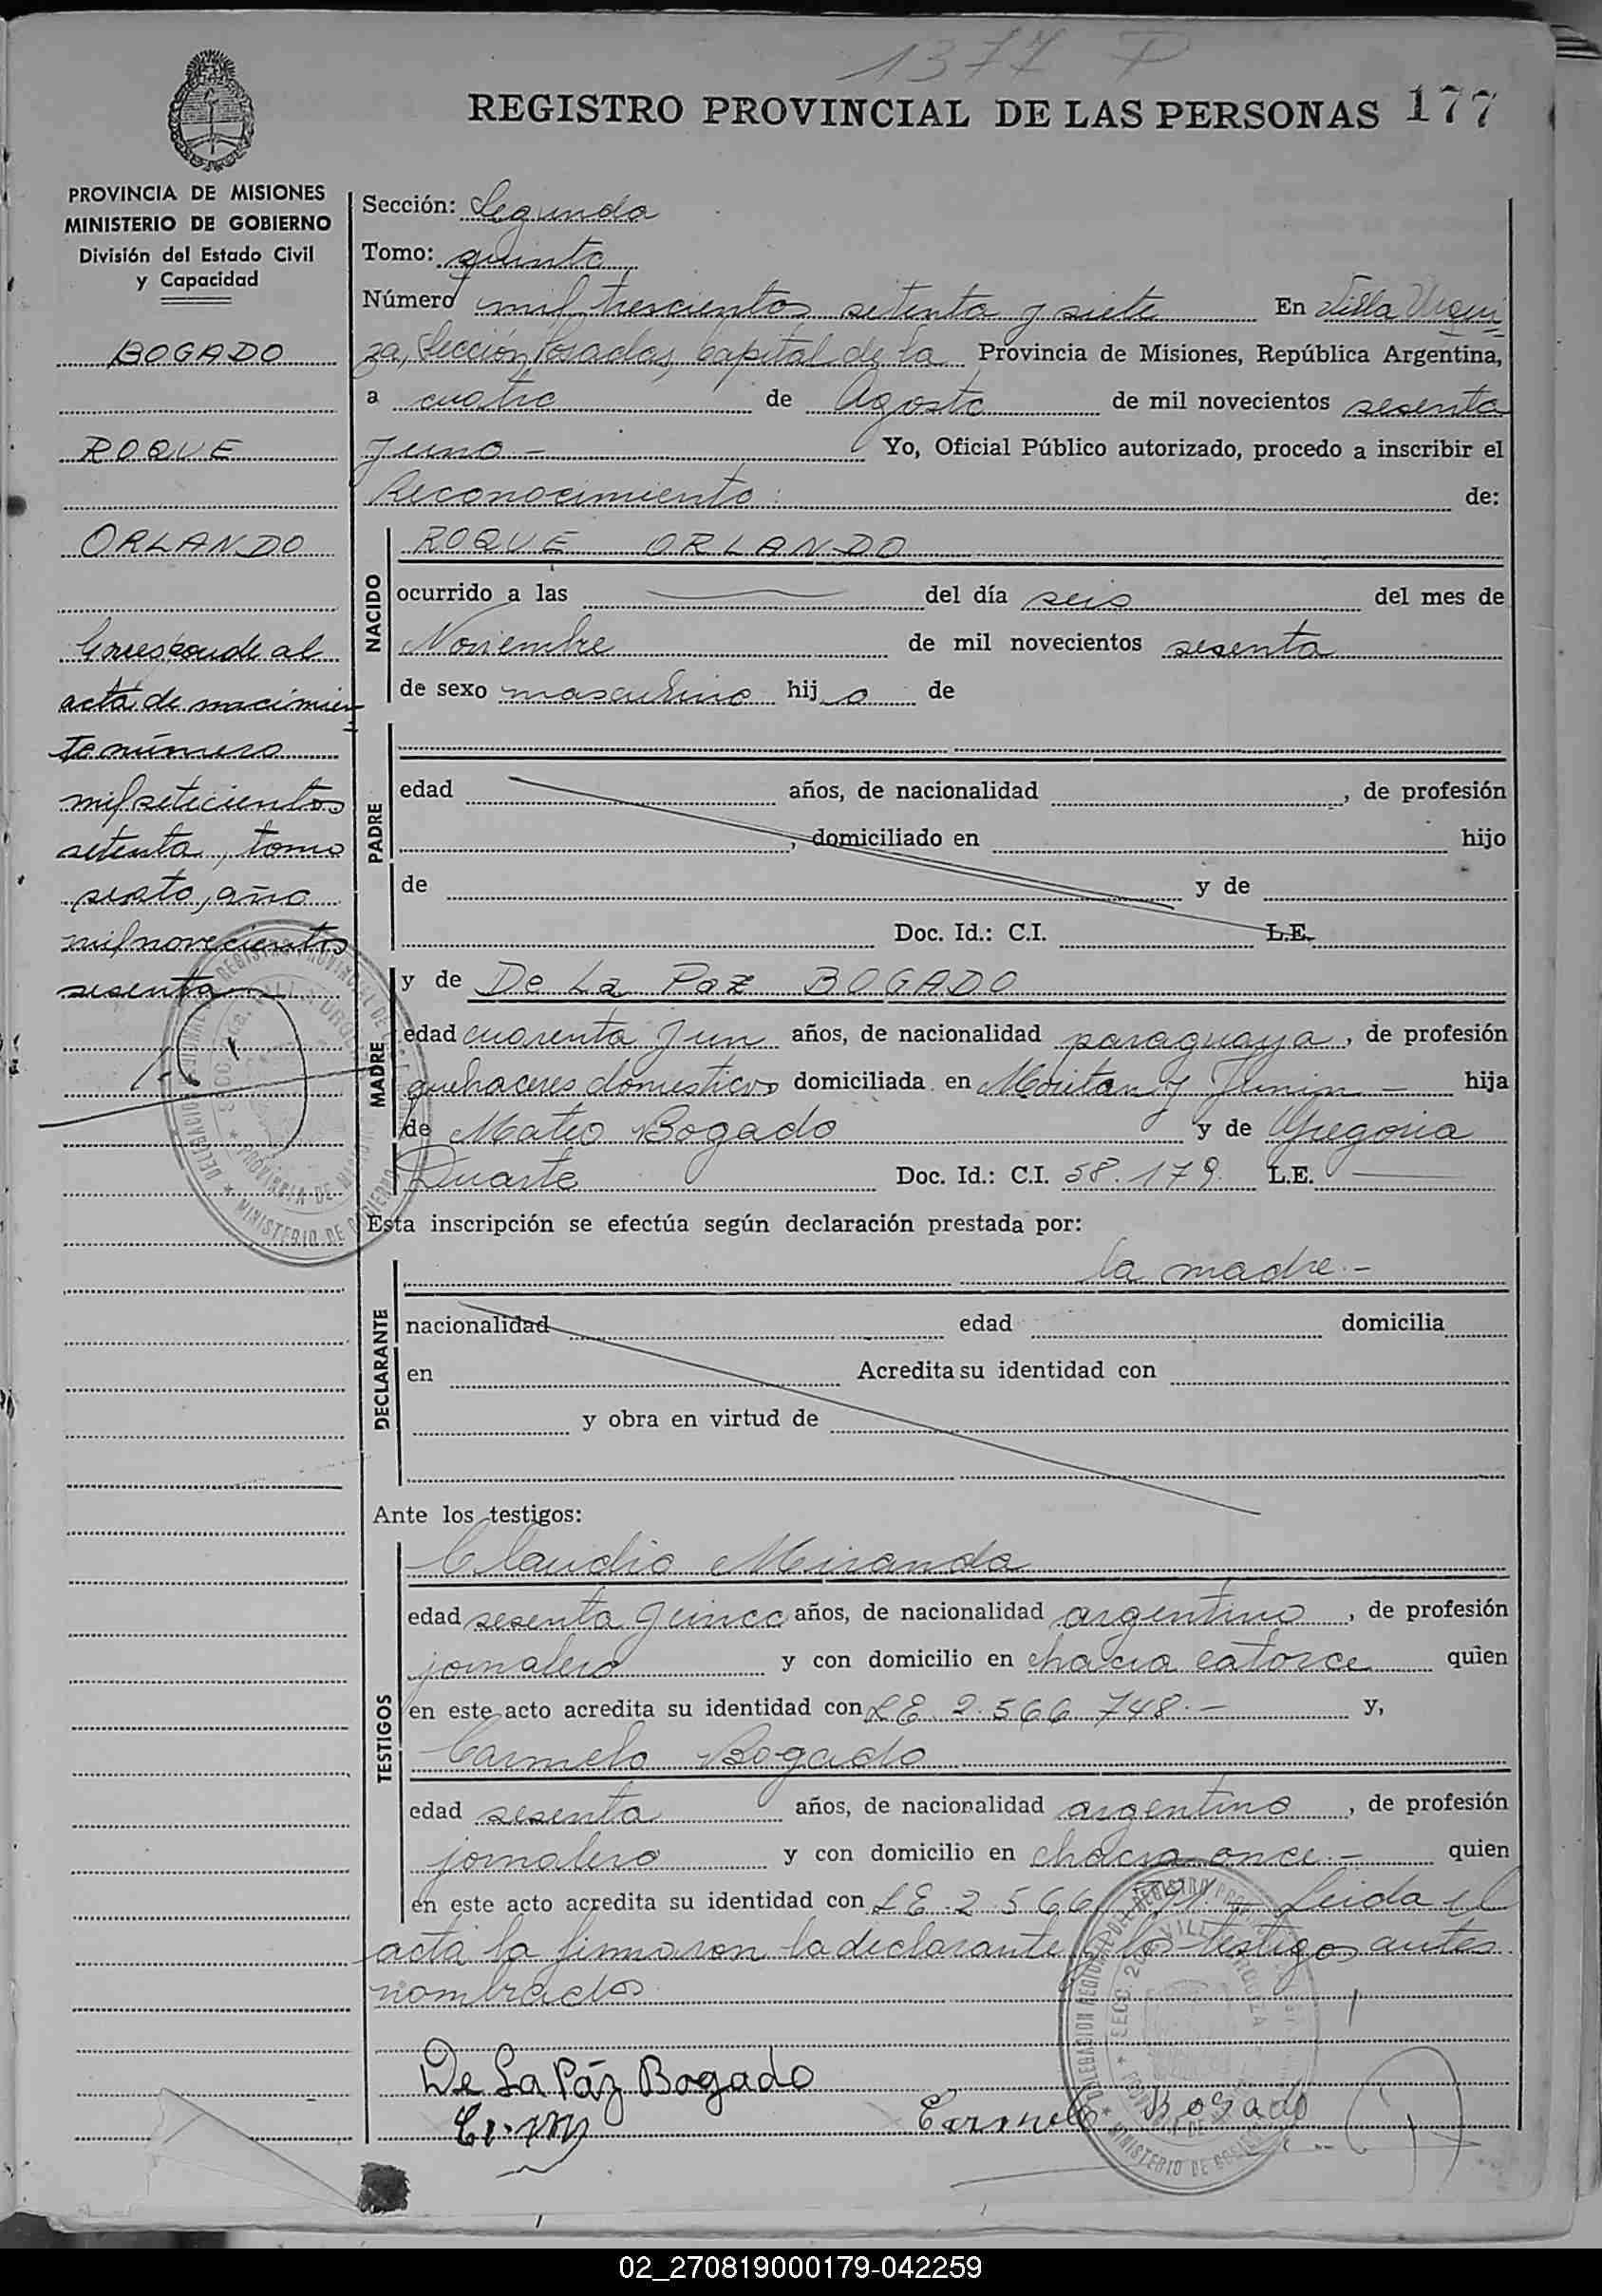 1377 P
REGISTRO PROVINCIAL DE LAS PERSONAS 177
PROVINCIA DE MISIONES
MINISTERIO DE GOBIERNO
División del Estado Civil
y Capacidad
BOGADO
ROQUE
ORLANDO
Corresponde al
acta de nacimien
to número
mil setecientos
setenta, tomo
sexto, año
mil novecientos
sesenta
Sección: Segunda
Tomo: quinto
Número mil trescientos setenta y siete En Villa Urqui
za, Sección Posadas, Capital de la Provincia de Misiones, República Argentina,
a cuatro de Agosto de mil novecientos sesenta
y uno - Yo, Oficial Público autorizado, procedo a inscribir el
Reconocimiento: de:
NACIDO
ROQUE ORLANDO
ocurrido a las del día seis del mes de
Noviembre de mil novecientos sesenta
de sexo masculino hijo de
PADRE
edad años, de nacionalidad , de profesión
, domiciliado en hijo
de y de
Doc. Id.: C.I. L.E.
MADRE
y de De La Paz BOGADO
edad cuarenta y un años, de nacionalidad paraguaya, de profesión
quehaceres domesticos domiciliada en y Junin - hija
de Mateo Bogado y de Gregoria
Duarte Doc. Id.: C.I. 58.179. L.E.
Esta inscripción se efectúa según declaración prestada por:
DECLARANTE
la madre.-
nacionalidad edad domicilia
en Acredita su identidad con
y obra en virtud de
Ante los testigos:
TESTIGOS
Claudio Miranda
edad sesenta y cinco años, de nacionalidad argentino, de profesión
jornalero y con domicilio en chacra catorce quien
en este acto acredita su identidad con LE 2.566.748.- y,
Carmelo Bogado
edad sesenta años, de nacionalidad argentino, de profesión
jornalero y con domicilio en chacra once.- quien
en este acto acredita su identidad con LE.2.566 Leida el
acta la firmaron la declarante y los testigos antes
nombrados
De La Páz Bogado
Carmelo Bogado
02_270819000179-042259